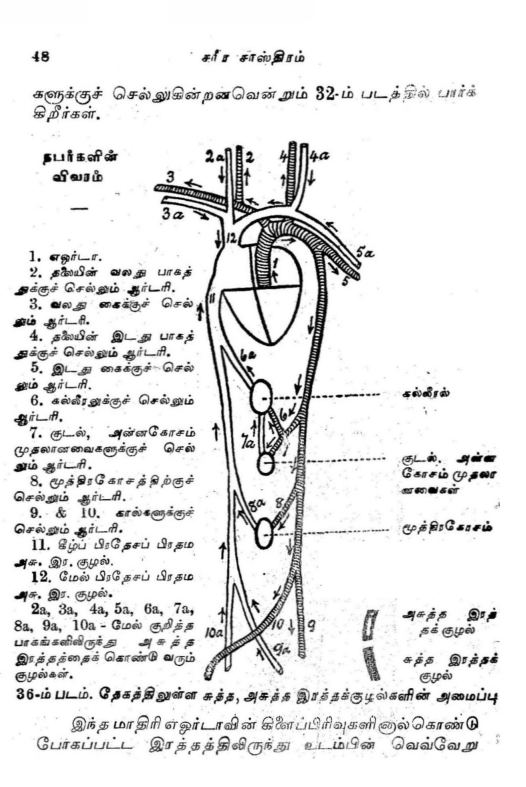 48
சரீர சாஸ்திரம்
களுக்குச் செல்லுகின்றனவென்றும் 32-ம் படத்தில் பார்க்
கிறீர்கள்.
நபர்களின்
விவரம்
2a
2
4
4a
3
3a
12
5a
5
1
11
6a
6
7a
8a
8
10a
10
9
9a
1. எஒர்டா.
2. தலையின் வலது பாகத்
துக்குச் செல்லும் ஆர்டரி.
3. வலது கைக்குச் செல்
லும் ஆர்டரி.
4. தலையின் இடது பாகத்
துக்குச் செல்லும் ஆர்டரி.
5. இடது கைக்குச் செல்
லும் ஆர்டரி.
6. கல்லீரலுக்குச் செல்லும்
ஆர்டரி.
7. குடல், அன்னகோசம்
முதலானவைகளுக்குச் செல்
லும் ஆர்டரி.
8. மூத்திரகோசத்திற்குச்
செல்லும் ஆர்டரி.
9. & 10. கால்களுக்குச்
செல்லும் ஆர்டரி.
11. கீழ்ப் பிரதேசப் பிரதம
அசு. இர. குழல்.
12. மேல் பிரதேசப் பிரதம
அசு. இர. குழல்.
2a, 3a, 4a, 5a, 6a, 7a,
8a, 9a, 10a - மேல் குறித்த
பாகங்களிலிருந்து அசுத்த
இரத்தத்தைக் கொண்டு வரும்
குழல்கள்.
கல்லீரல்
குடல், அன்ன
கோசம் முதலா
னவைகள்
மூத்திரகோசம்
அசுத்த இரத்
தக் குழல்
சுத்த இரத்தக்
குழல்
36-ம் படம். தேகத்திலுள்ள சுத்த, அசுத்த இரத்தக்குழல்களின் அமைப்பு
இந்த மாதிரி எஒர்டாவின் கிளைப்பிரிவுகளினால் கொண்டு
போகப்பட்ட இரத்தத்திலிருந்து உடம்பின் வெவ்வேறு